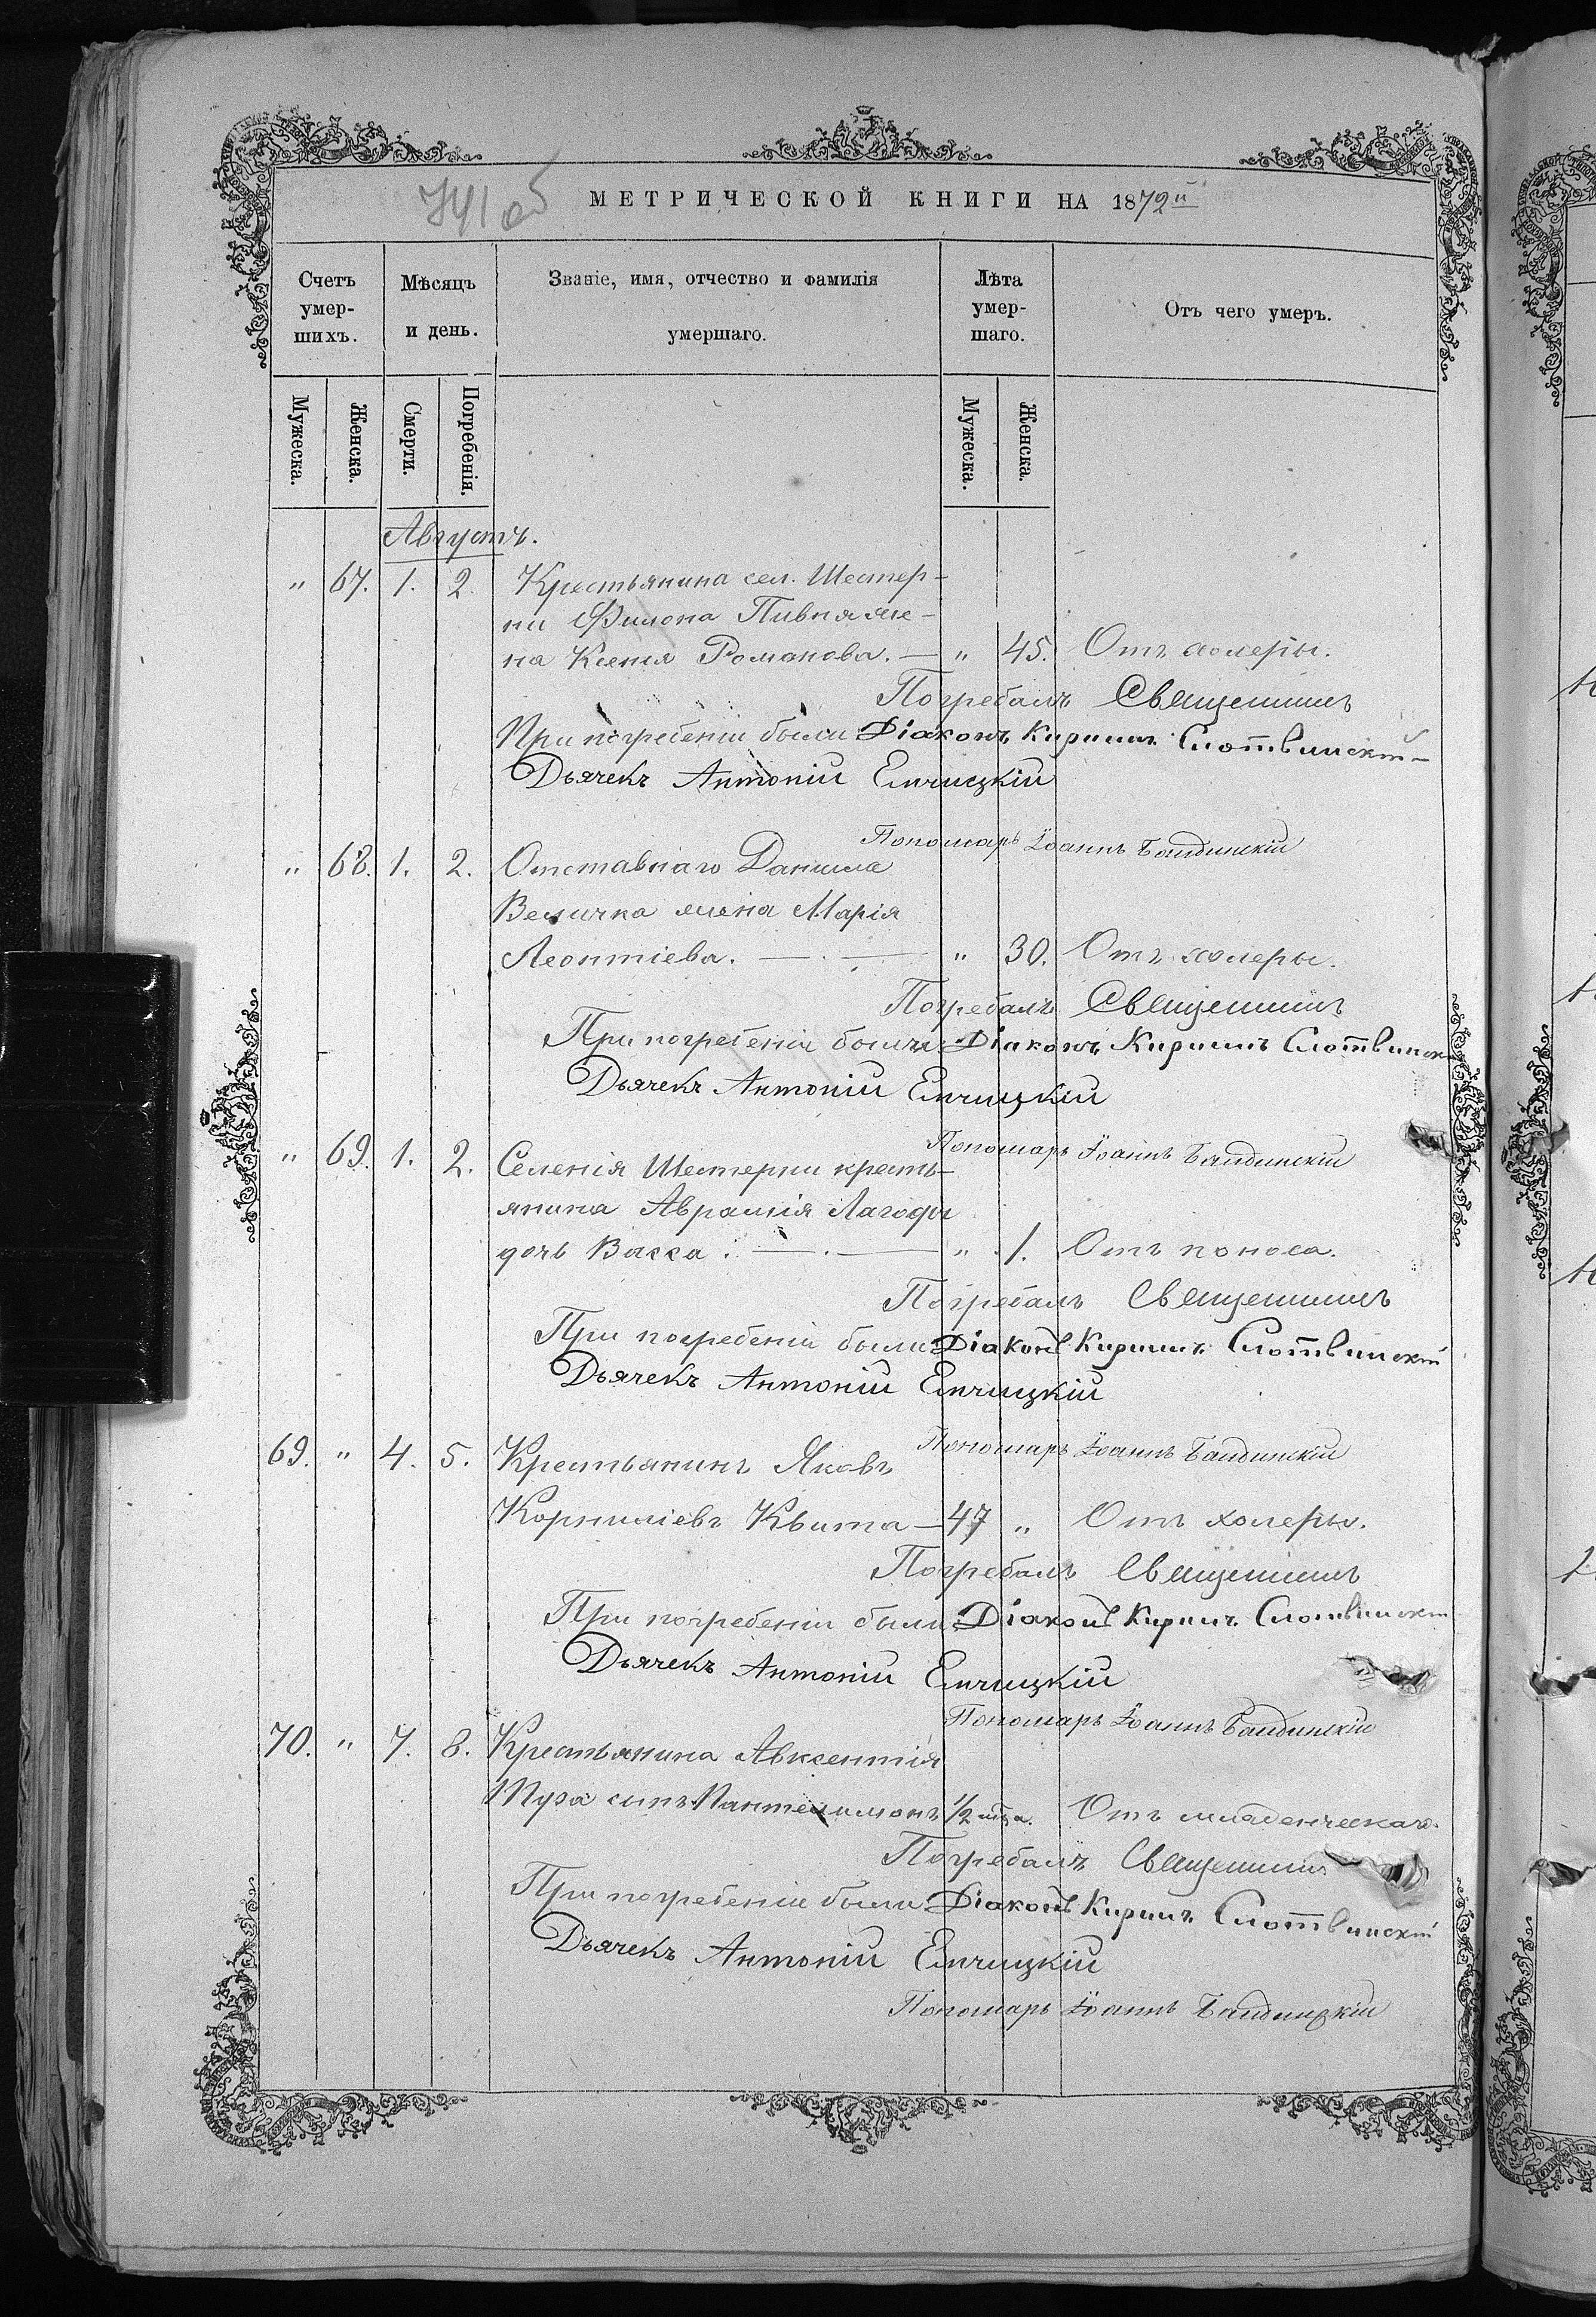 741 об
МЕТРИЧЕСКОЙ КНИГИ НА 1872й
Счетъ умер-шихъ.
Мѣсяцъ и день.
Званіе, имя, отчество и фамилія умершаго.
Лѣта умер-шаго.
Отъ чего умеръ.
Мужеска.
Женска.
Смерти.
Погребенія.
Мужеска.
Женска.
Августъ.
" 67. 1. 2. Крестьянина сел. Шестер-
ни Филона Пивня же-
на Ксенія Романова. — " 45. Отъ холеры.
Погребалъ Священникъ
При погребеніи были: Діаконъ Кириллъ Слотвинскій
Дьячекъ Антоній Елчицкій
Пономарь Іоаннъ
" 68. 1. 2. Отставнаго Данила
Величка жена Марія
Леонтіева. — " 30. Отъ холеры.
Погребалъ Священникъ
При погребеніи были: Діаконъ Кириллъ Слотвинск
Дьячекъ Антоній Елчицкій
Пономарь Іоаннъ
" 69. 1. 2. Селенія Шестерни кресть-
янина Аврамія Лагоды
дочь Васса. — " 1. Отъ поноса.
Погребалъ Священникъ
При погребеніи были: Діаконъ Кириллъ Слотвинскій
Дьячекъ Антоній Елчицкій
Пономарь Іоаннъ
69. " 4. 5. Крестьянинъ Яковъ
Корниліевъ Квита — 47 " Отъ холеры.
Погребалъ Священникъ
При погребеніи были: Діаконъ Кирилъ Слотвинскій
Дьячекъ Антоній Елчицкій
Пономарь Іоаннъ
70. " 7. 8. Крестьянина Авксентія
сынъ Пантелимонъ 1/2 мца. Отъ младенческаго.
Погребалъ Священникъ
При погребеніи были: Діаконъ Кирилъ Слотвинскій
Дьячекъ Антоній Елчицкій
Пономарь Іоаннъ